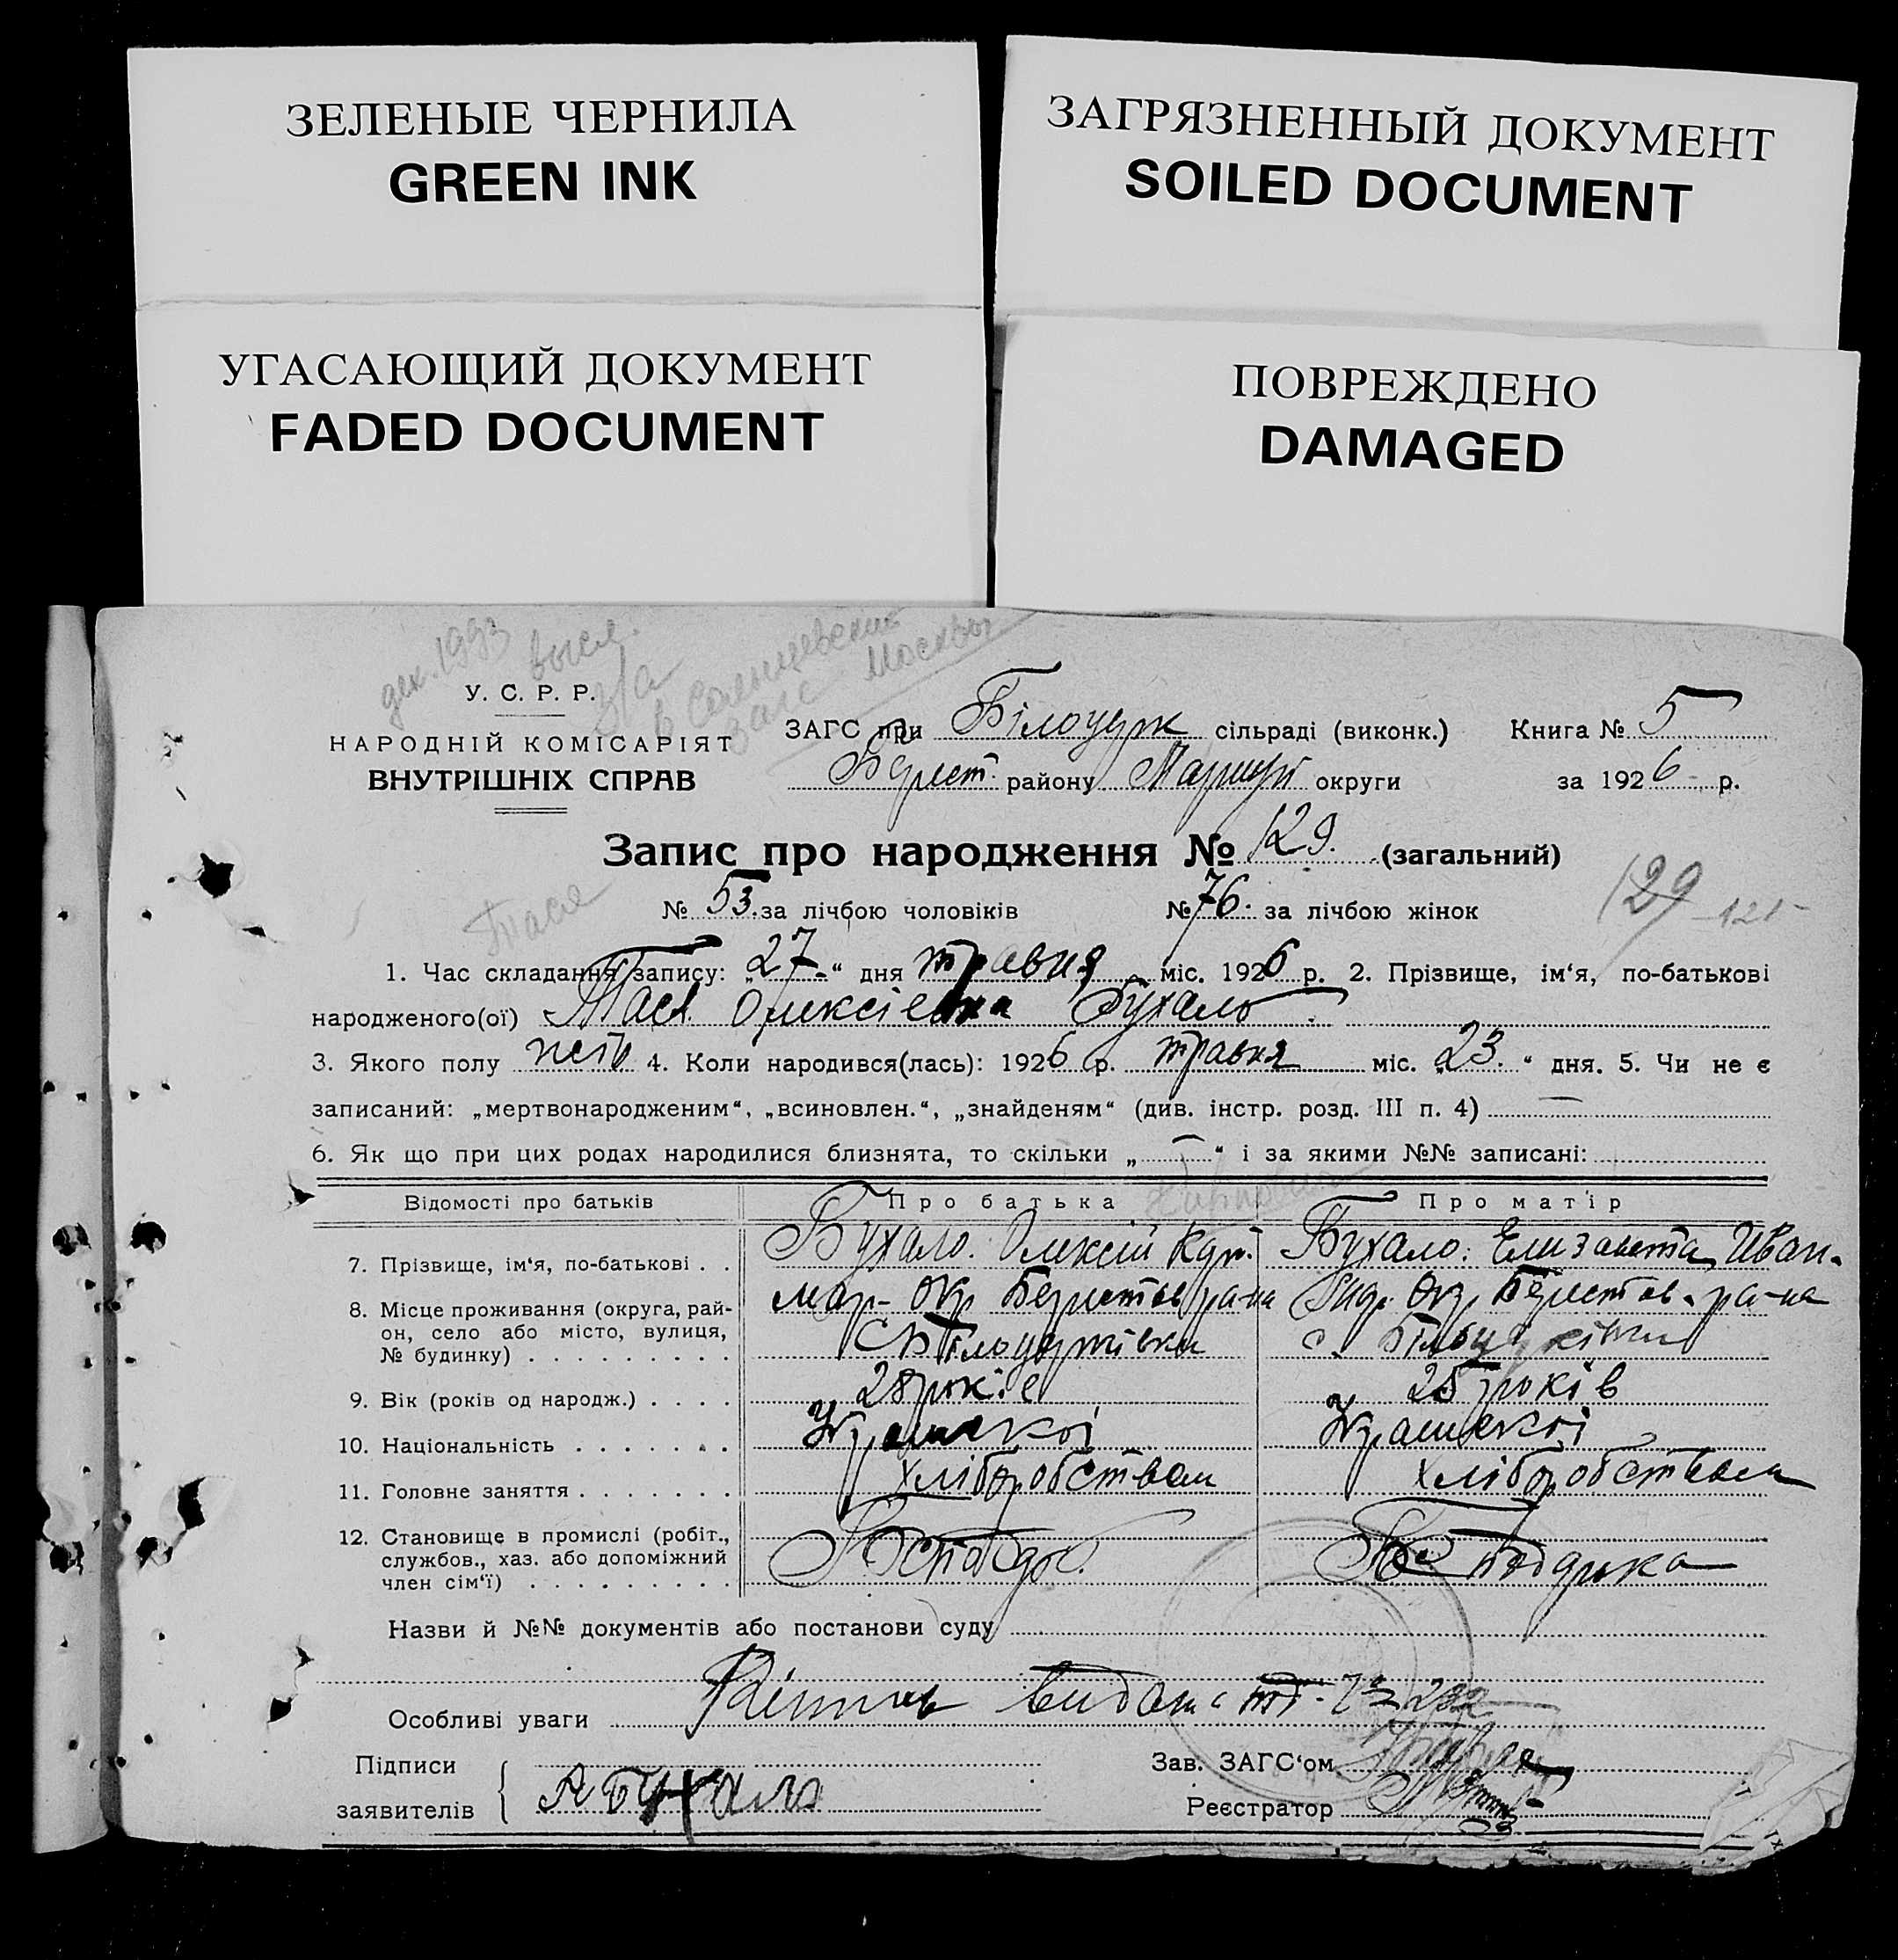 ЗЕЛЕНЫЕ ЧЕРНИЛА
GREEN INK
ЗАГРЯЗНЕННЫЙ ДОКУМЕНТ
SOILED DOCUMENT
УГАСАЮЩИЙ ДОКУМЕНТ
FADED DOCUMENT
ПОВРЕЖДЕНО
DAMAGED
дек. 1993
высл.
в Солнцевский
загс Москвы
У. С. Р. Р.
НАРОДНІЙ КОМІСАРІЯТ
ВНУТРІШНІХ СПРАВ
ЗАГС при Білоцерк сільраді (виконк.) Книга № 5
Берест. району Маріюп округи за 1926 р.
Запис про народження № 129. (загальний)
№ 53. за лічбою чоловіків № 76. за лічбою жінок
129 121
Тася
1. Час складання запису: „27“ дня травня міс. 1926 р. 2. Прізвище, ім‘я, по-батькові
народженого(ої) Тася Олексіевна Бухало.
3. Якого полу жен 4. Коли народився(лась): 1926 р. травня міс. „23.“ дня. 5. Чи не є
записаний: „мертвонародженим“, „всиновлен.“, „знайденям“ (див. інстр. розд. III п. 4) —
6. Як що при цих родах народилися близнята, то скільки „—“ і за якими №№ записані:
Карпович
Відомості про батьків Про батька Про матір
7. Прізвище, ім‘я, по-батькові . . Бухало. Олексій Кар. Бухало. Елизавета Иван.
8. Місце проживання (округа, рай- Мар- окр Берестов ра-на Мар. Окр Берестов. ра-на
он, село або місто, вулиця, С Білоцерківка с. Білоцерківки
№ будинку) . . . . . . . . .
9. Вік (років од народж.) . . . . 28 років 25 років
10. Національність . . . . . . . Украінскоі Украінскоі
11. Головне заняття . . . . . . . хліборобством хліборобством
12. Становище в промислі (робіт.,
службов., хаз. або допоміжний Господар. Господарка
член сім‘ї) . . . . . . . . .
Назви й №№ документів або постанови суду
Особливі уваги видан
Підписи Зав. ЗАГС‘ом
заявителів А Бухало Реєстратор